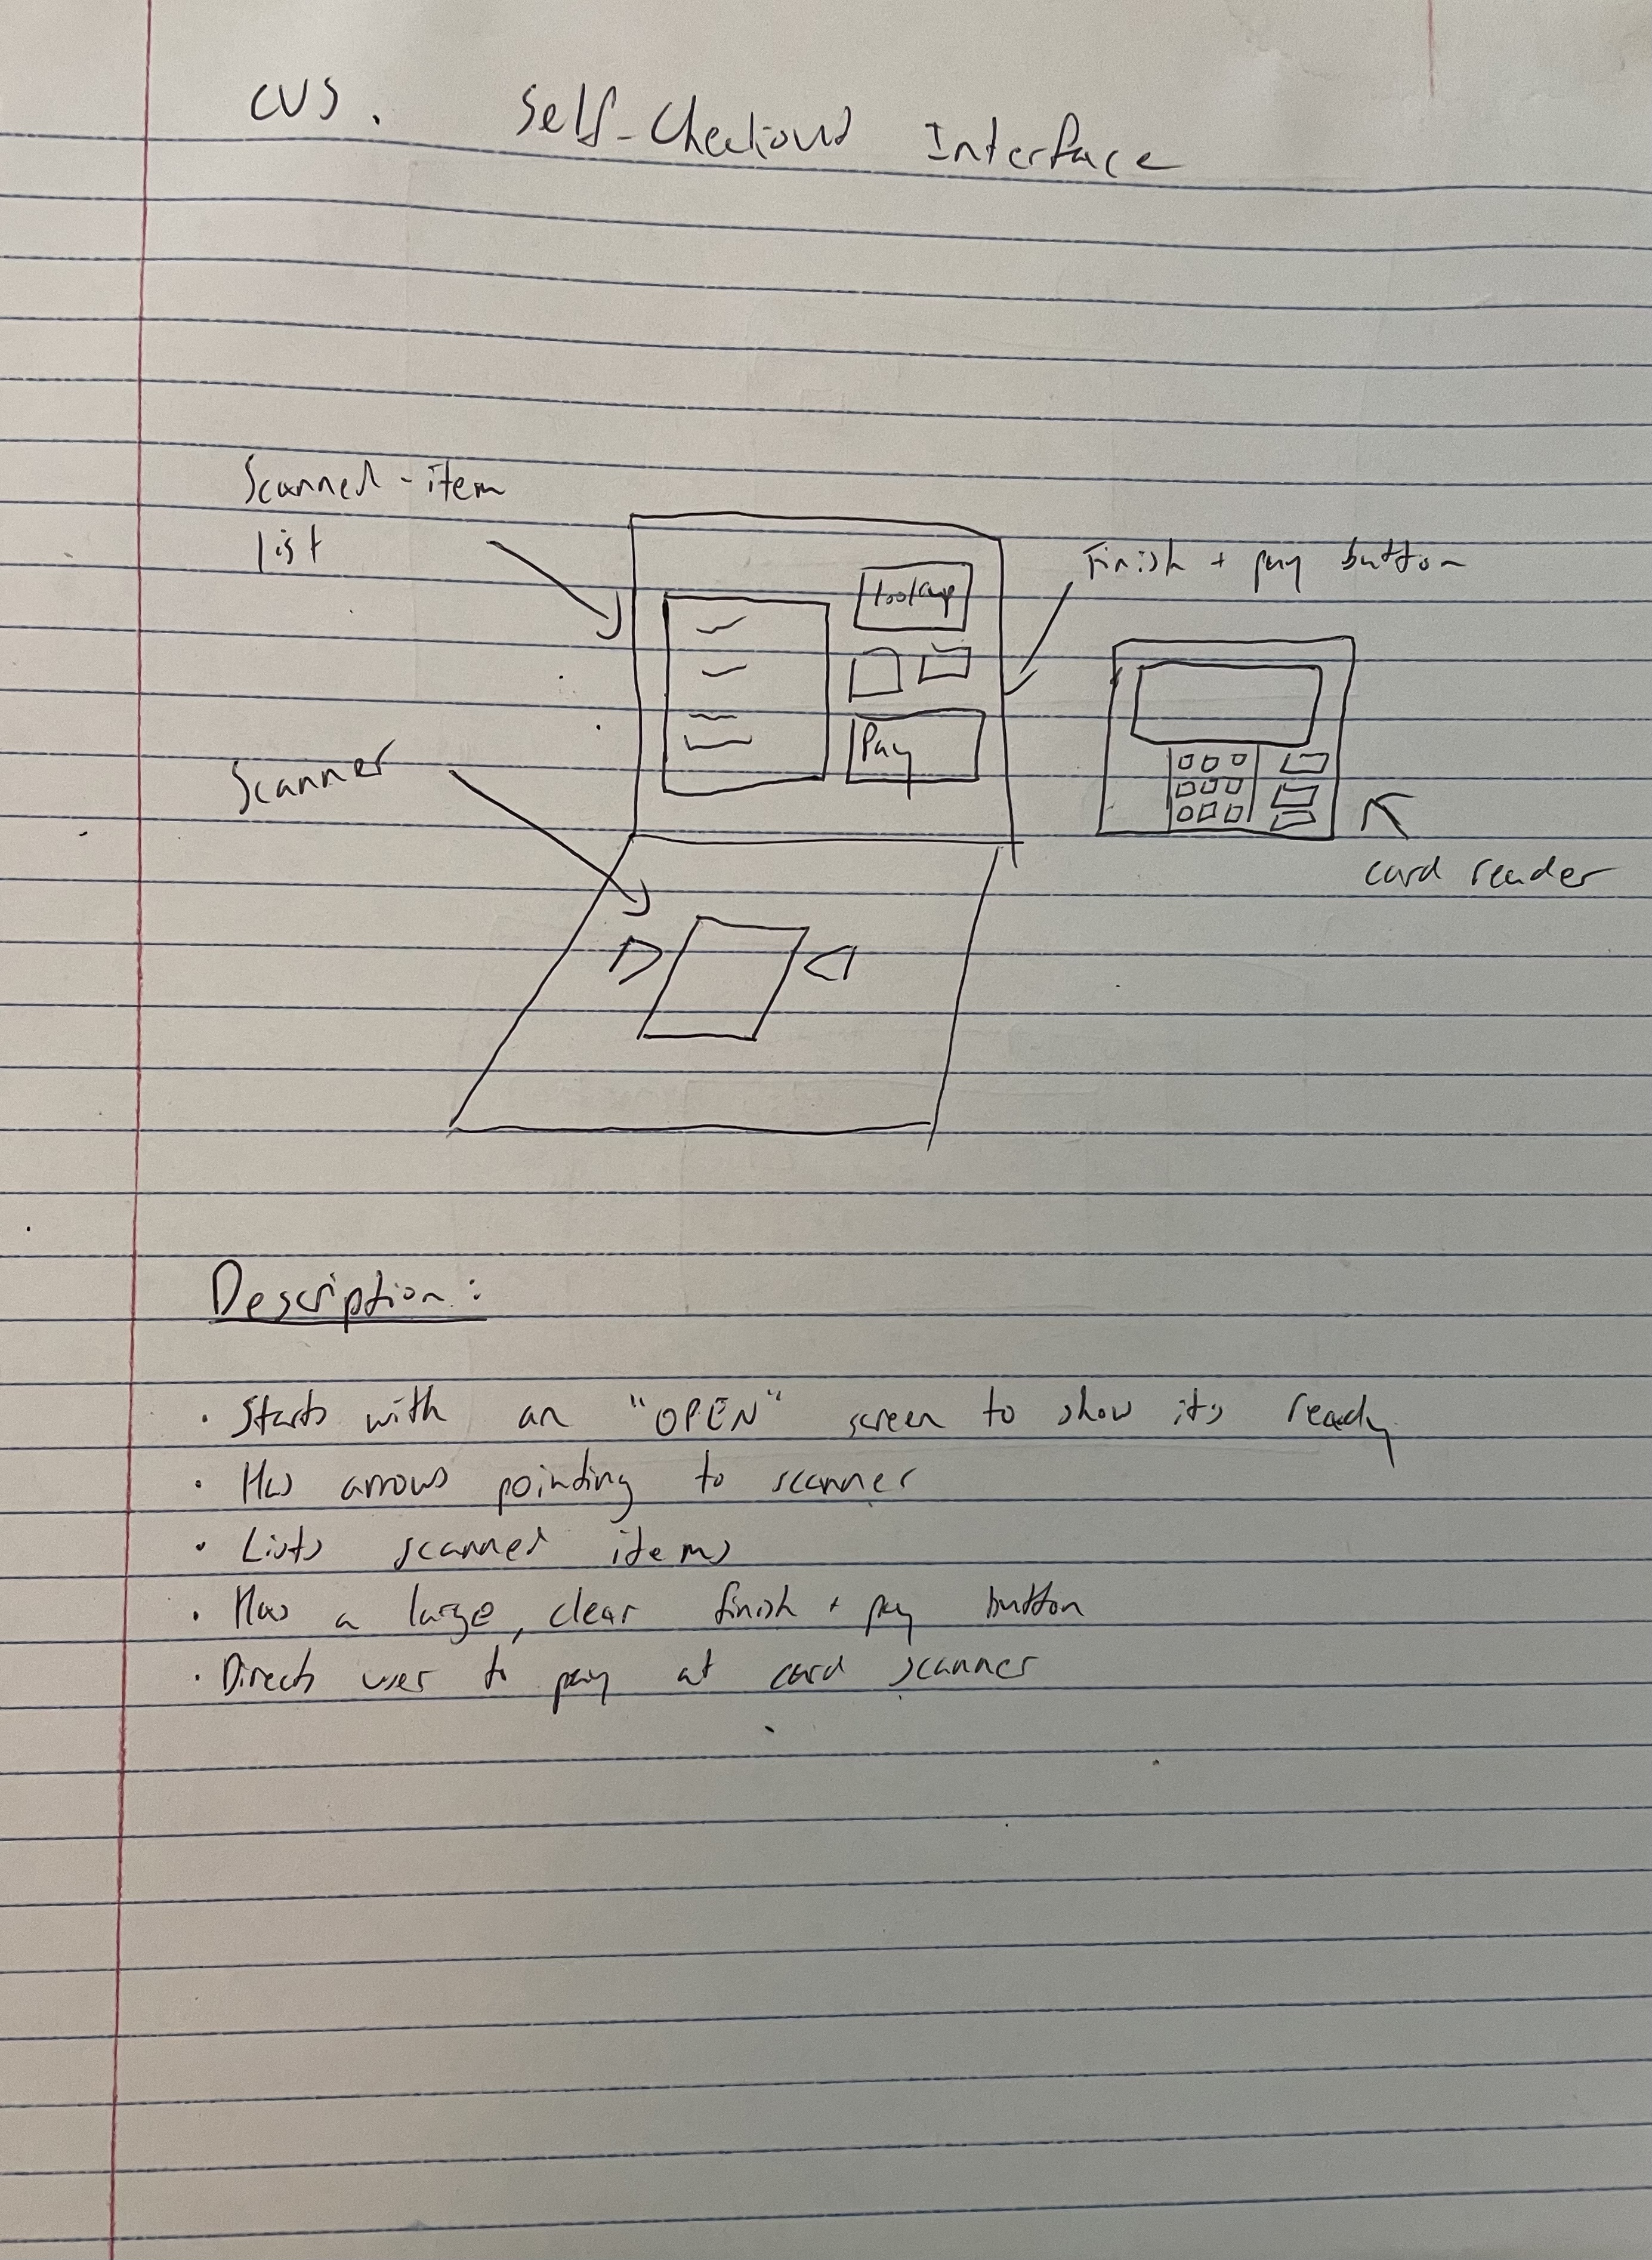 CVS. Self-Checkout Interface
Scanned-item
list
Finish + pay button
lookup
Pay
Scanner
card reader
Description:
· Starts with an "OPEN" screen to show its ready
· Has arrows pointing to scanner
· Lists scanned items
· Has a large, clear finish + pay button
· Directs user to pay at card scanner